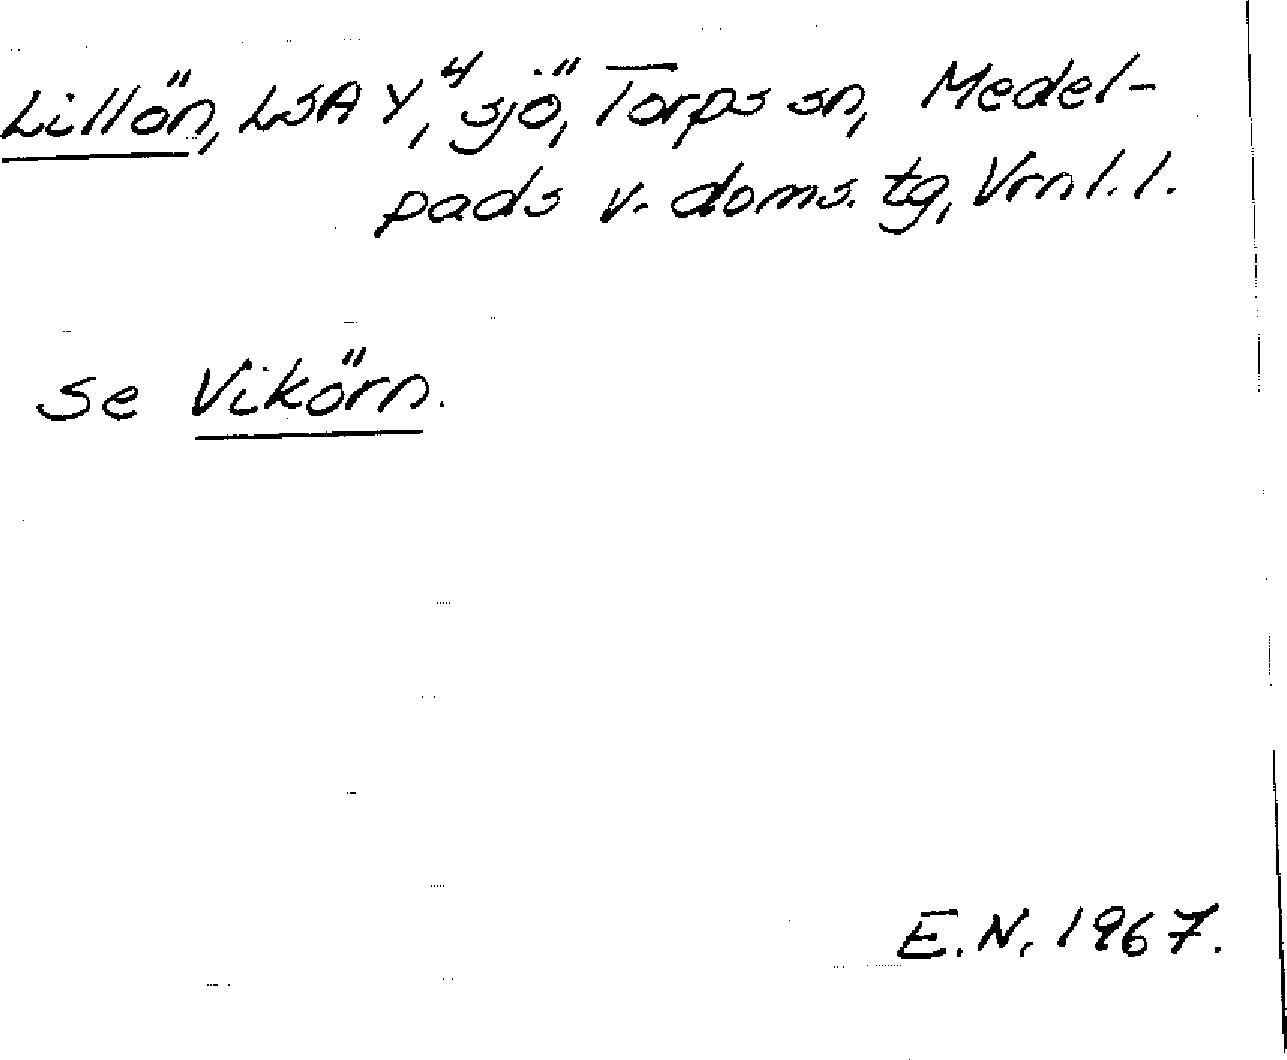 Lillön, LSA Y⁴, sjö, Torps sn, Medel-
pads v. doms. tg, Vrnl. l.
se Vikörn.
E.N. 1967.